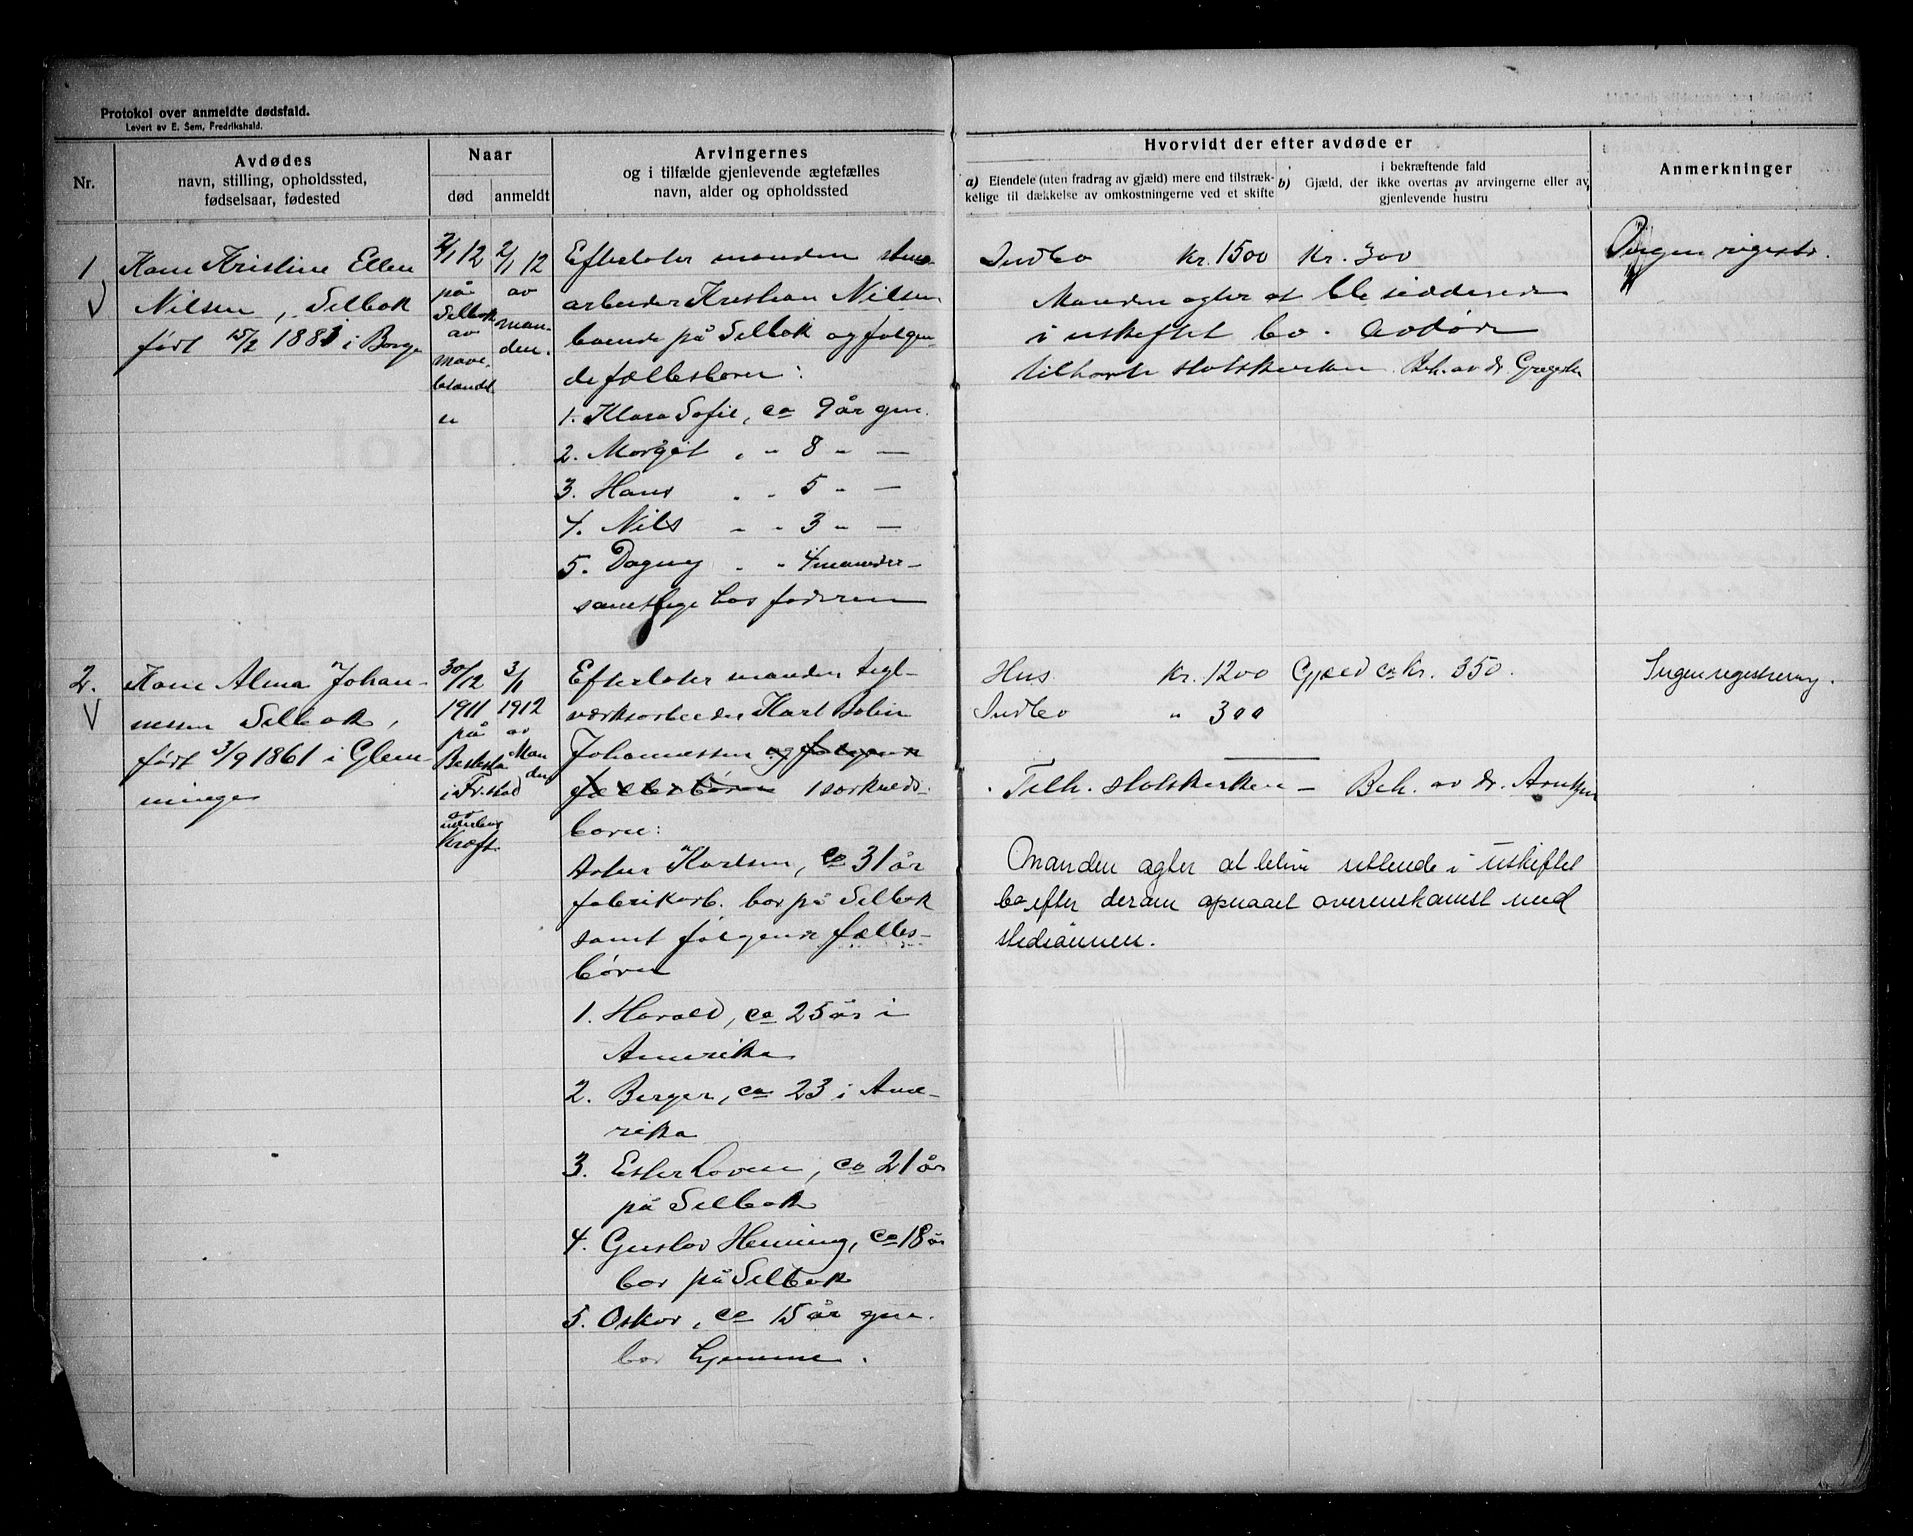 Protokol over anmeldte dødsfald.
Levert av E. Sem, Fredrikshald.
Nr.
Avdødes
navn, stilling, opholdssted,
fødselsaar, fødested
Naar
død
anmeldt
Arvingernes
og i tilfælde gjenlevende ægtefælles
navn, alder og opholdssted
Hvorvidt der efter avdøde er
a) Eiendele (uten fradrag av gjæld) mere end tilstræk-
kelige til dækkelse av omkostningerne ved et skifte
i bekræftende fald
b) Gjæld, der ikke overtas av arvingerne eller av
gjenlevende hustru
Anmerkninger
1
Kone Kristine Ellen
Nilsen, Selbak
født 15/2 1881 i Borge
2/1 12
på
Selbak
av
mave-
2/1 12
av
man-
den.
Efterlater manden
arbeider Kristian Nilsen
boende på Selbak og følgen-
de fællesbørn:
1. Klara Sofie, ca 9 år gm.
2. Margit, " 8 " —
3. Hans " " 5 " —
4. Nils " " 3 " —
5. Dagny " " 4 maaneder —
samtlige hos faderen
Indbo Kr. 1500 Kr. 300
Manden agter at bli siddende
i uskiftet bo. Avdøde
tilhørte statskirken. Beh. av dr
Ingen registr.
2.
Kone Alma Johan-
nesen Selbak,
født 3/9 1861 i Glem-
minge
30/12
1911
på
i Fr.stad
av
Kræft.
3/1
1912
av
Man
den
Efterlater manden tegl-
værksarbeider Karl
Johannessen og følgende
fællesbørn 1 særkulds-
barn:
Karlsen, ca 31 år
fabrikarb. bor på Selbak
samt følgende fælles-
børn
1. Harald, ca 25 år i
Amerika
2. Berger, ca 23 i Ame-
rika
3. Ester Lovise, ca 21 år
på Selbak
4. Gustav Henning, ca 18 år
bor på Selbak
5. Oskar, ca 15 år gm.
bor hjemme.
Hus Kr. 1200 Gjæld ca Kr. 350.
Indbo " 300
Tilh. statskirken — Beh. av dr.
Manden agter at bli sittende i uskiftet
bo efter derom opnaaet overenskomst med
stedsønnen.
Ingen registrering.